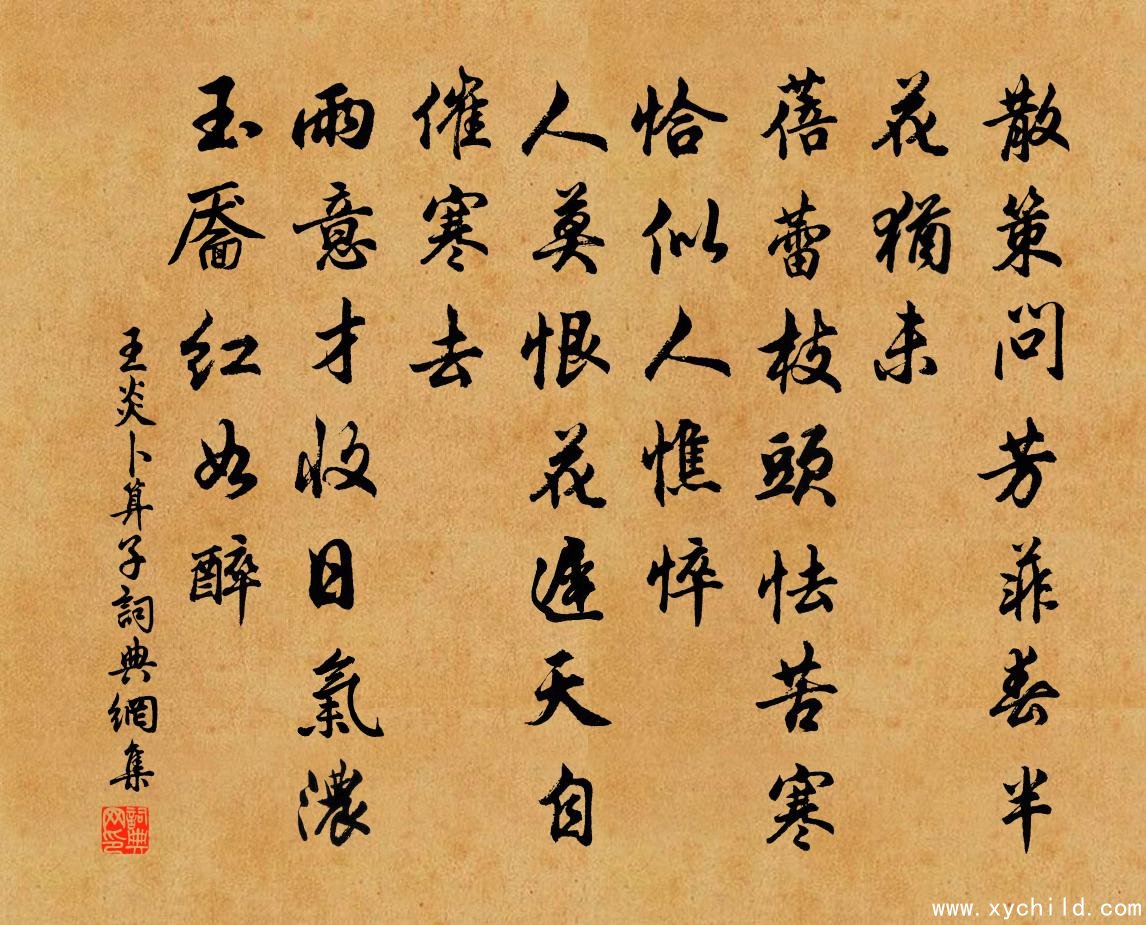 散策問芳菲春半
花猶未
蓓蕾枝頭怯苦寒
恰似人憔悴
人莫恨花遲天自
催寒去
雨意才收日氣濃
玉靨紅如醉
王炎卜算子詞典網集
詞典网印
www.xychild.com